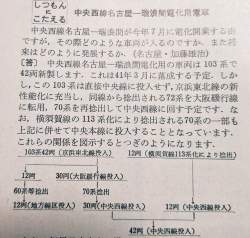 しつもん
にこたえる
中央西線名古屋—瑞浪間電化用電車
中央西線名古屋—瑞浪間が今年7月に電化開業する由
ですが，その際どのような車両が入るのですか，また将来
はどのように発展するか。（名古屋・加藤雄治）
〔答〕 中央西線名古屋—瑞浪間電化用の車両は103系で
42両新製します。これは41年3月に落成する予定。しか
し，この103系は直接中央線に投入せず，京浜東北線の新
性能化に充当し，同線から捻出される72系を大阪鉄線
に転用，70系を再転出して中央西線に回す予定です。な
お，横須賀線の113系化により捻出される70系の一部も
上記に併せて中央本線に投入することとなっています。
これらの関係を図示するとつぎのようになります。
103系42両（京浜東北線投入）
12両（横須賀線113系化により捻出）
12両
30両（大阪鉄線投入）
60系等捻出
70系捻出
12両（地方線区投入）
30両（中央西線投入）
12両（中央西線投入）
42両（中央西線投入）